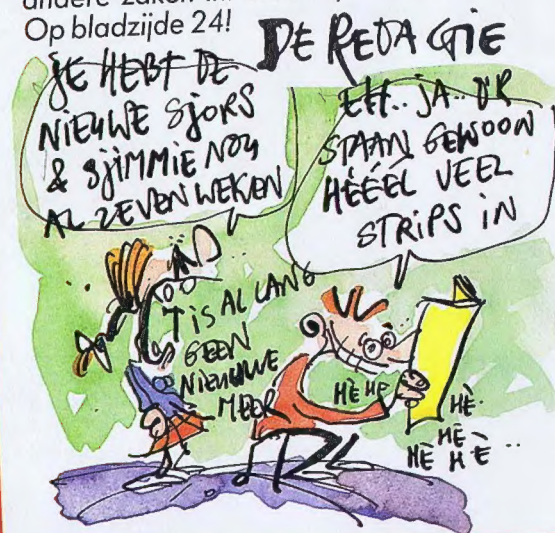 Op bladzijde 24!
DE REDAGTIE
JE HEBT DE
NIEUWE SJORS
& SJIMMIE NOU
AL ZEVEN WEKEN
EH.. JA.. D'R
STAAN GEWOON
HÉÉÉL VEEL
STRIPS IN
'T IS AL LANG
GEEN
NIEUWE
MEER
HÈ HÈ
HÈ.
HÈ
HÈ HÈ ..